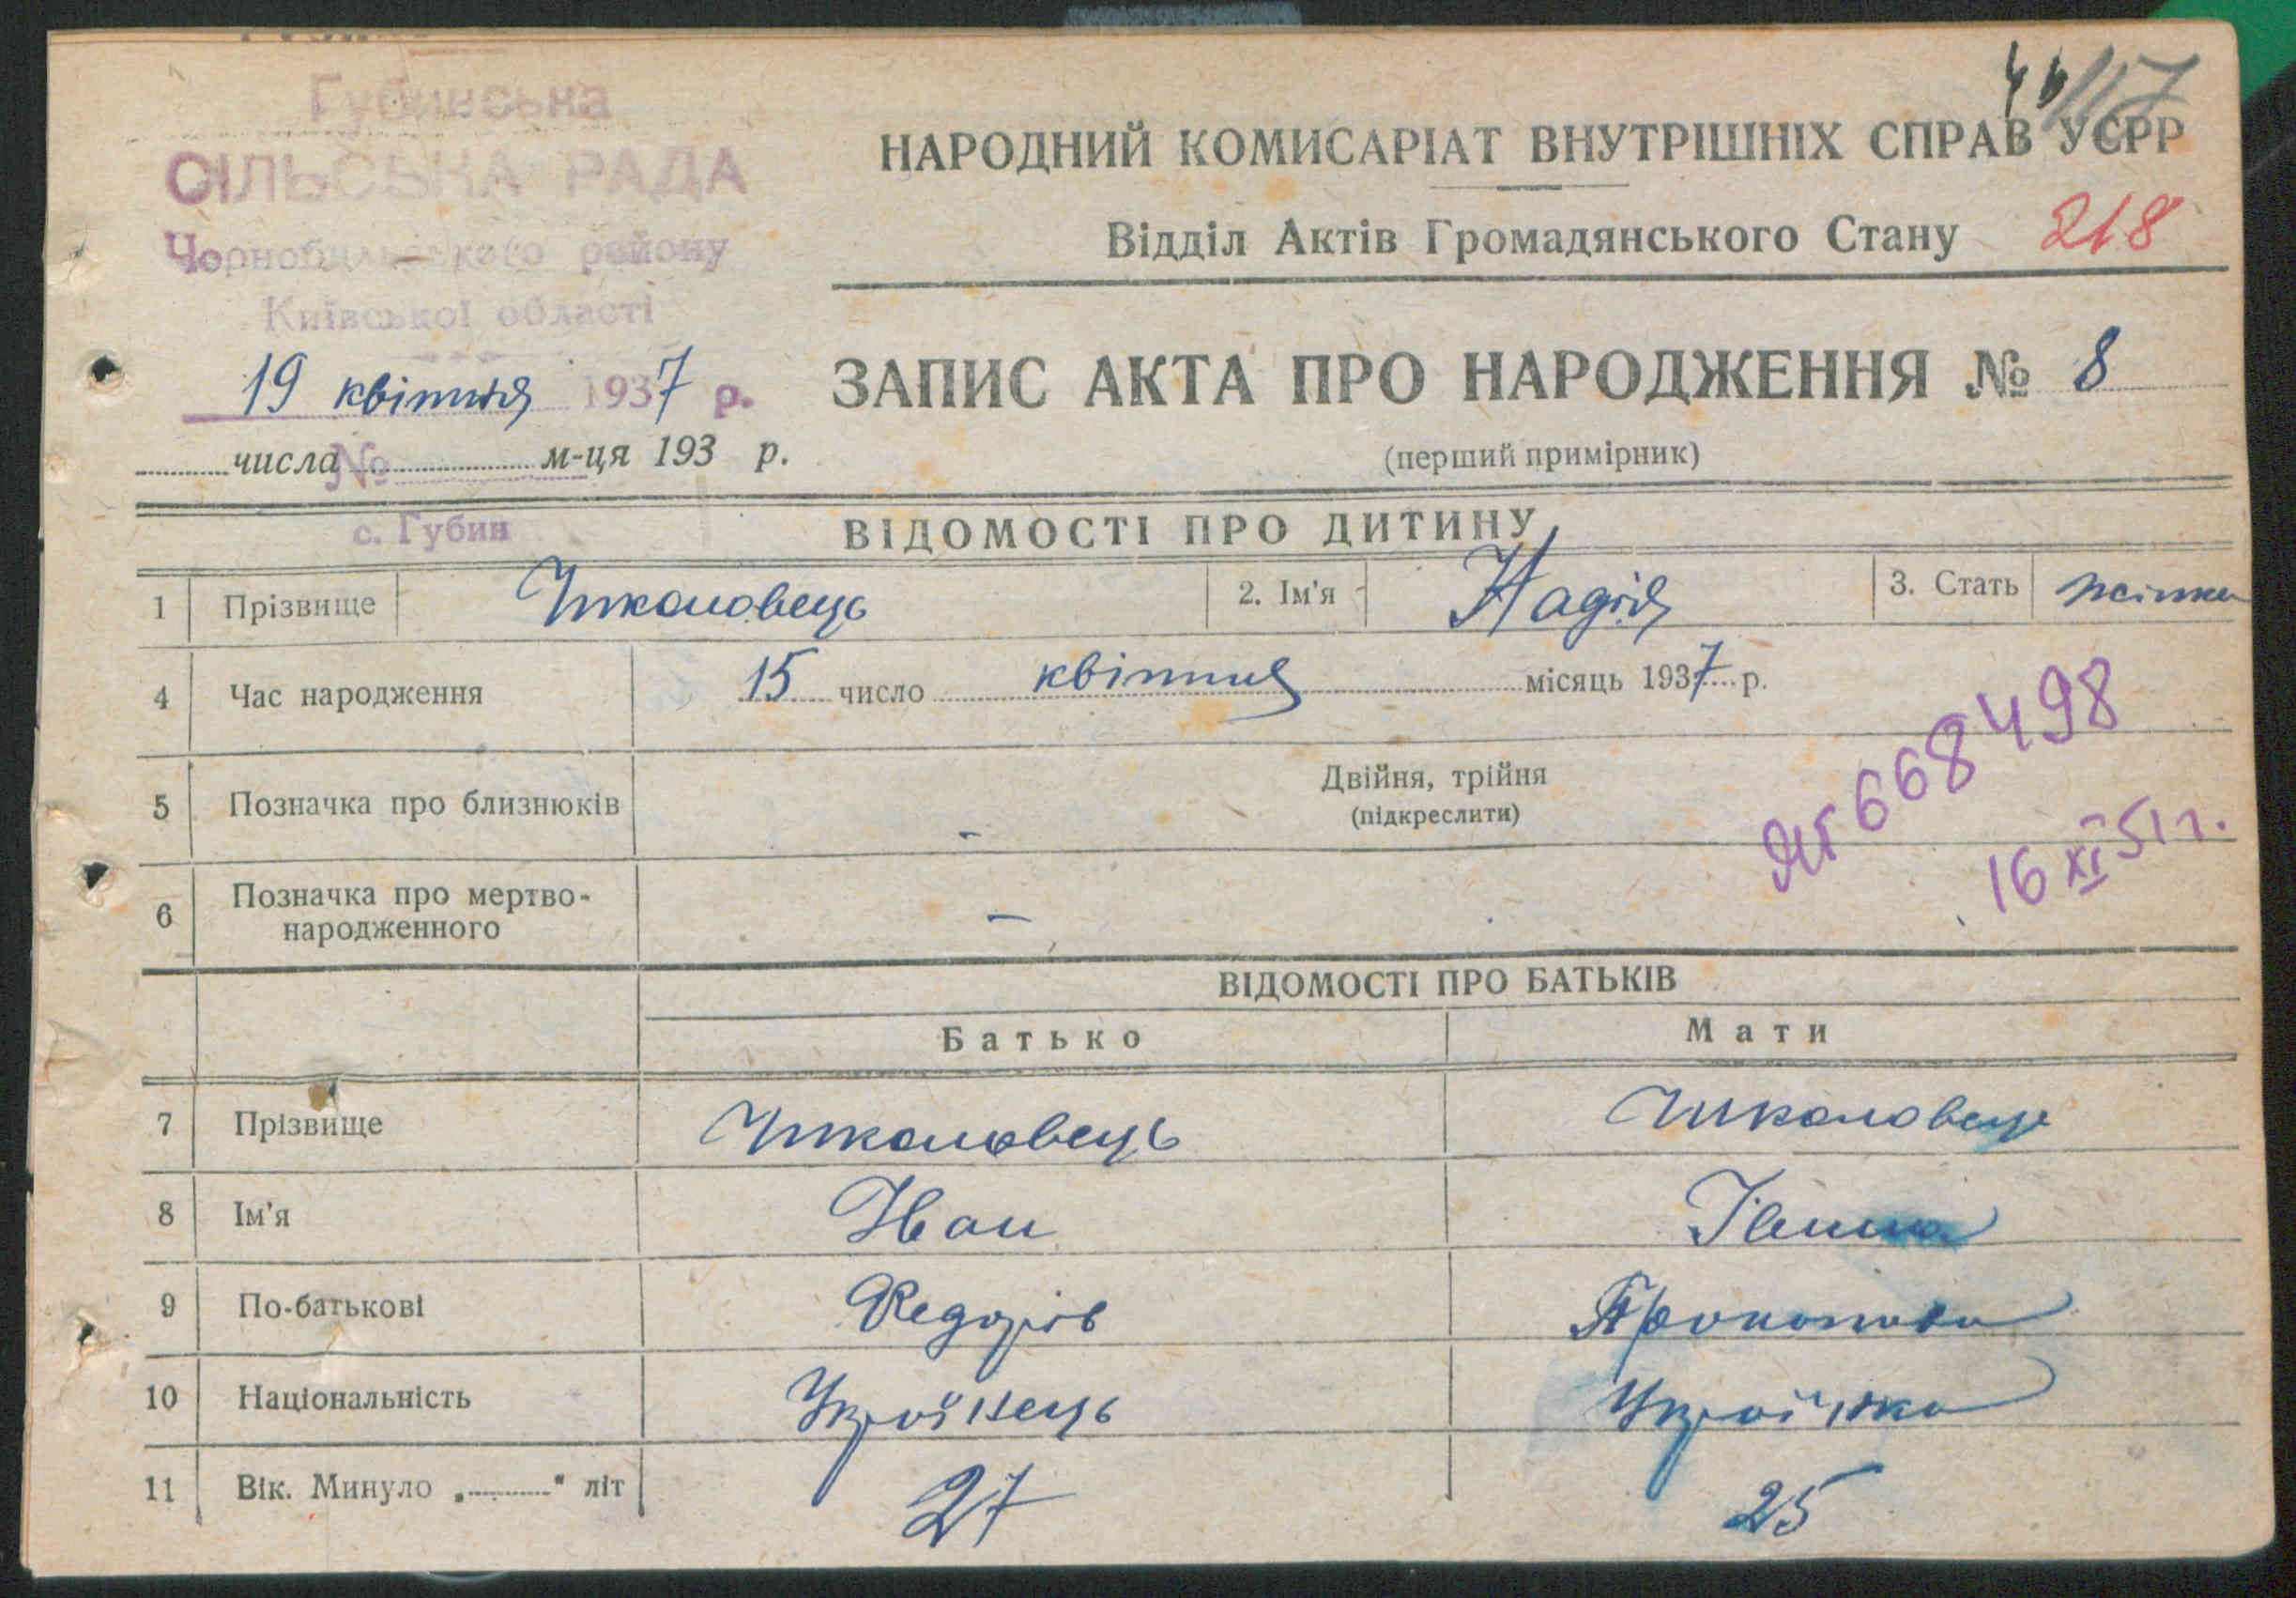 Губинська
СІЛЬСЬКА РАДА
Чорнобильського району
Київської області
19 квітня 1937 р.
числа № м-ця 193 р.
с. Губин
НАРОДНИЙ КОМИСАРІАТ ВНУТРІШНІХ СПРАВ УСРР
Відділ Актів Громадянського Стану 218
ЗАПИС АКТА ПРО НАРОДЖЕННЯ № 8
(перший примірник)
ВІДОМОСТІ ПРО ДИТИНУ
1 Прізвище 2. Ім'я Надія 3. Стать
4 Час народження 15 число квітня місяць 1937 р.
5 Позначка про близнюків - Двійня, трійня
(підкреслити)
668498
16 XI 51 г.
6 Позначка про мертво-
народженного -
ВІДОМОСТІ ПРО БАТЬКІВ
Батько Мати
7 Прізвище
8 Ім'я Іван
9 По-батькові Федорів
10 Національність Українець Українка
11 Вік. Минуло „ " літ 27 25